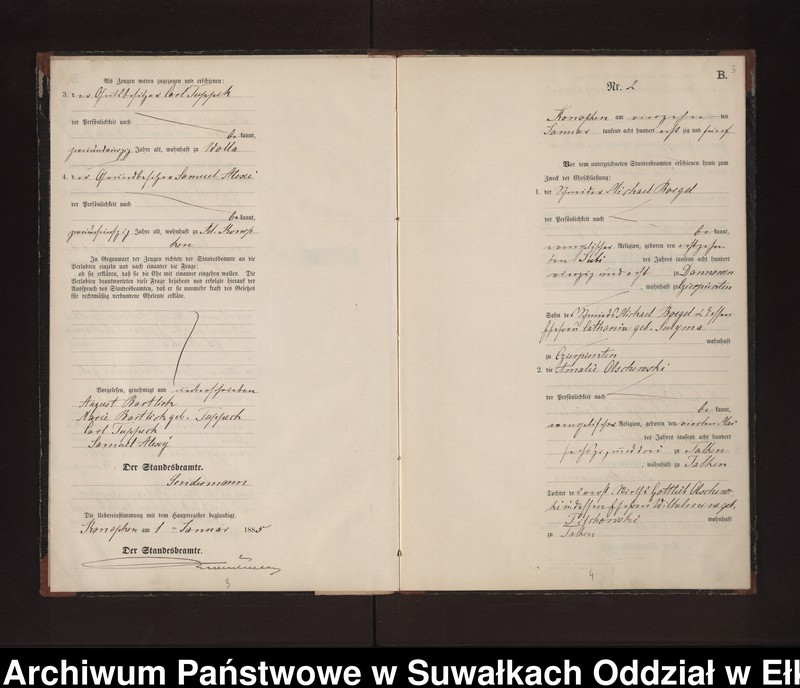 Als Zeugen waren zugezogen und erschienen:
3. der Gutsbesitzer Carl Tuppeck
der Persönlichkeit nach
be kannt,
zweiundzwanzig Jahre alt, wohnhaft zu Wolla
4. der Grundbesitzer Samuel Alexi
der Persönlichkeit nach
be kannt,
Jahre alt, wohnhaft zu Kl. Konop-
ken
In Gegenwart der Zeugen richtete der Standesbeamte an die
Verlobten einzeln und nach einander die Frage:
ob sie erklären, daß sie die Ehe mit einander eingehen wollen. Die
Verlobten beantworteten diese Frage bejahend und erfolgte hierauf der
Ausspruch des Standesbeamten, daß er sie nunmehr kraft des Gesetzes
für rechtmäßig verbundene Eheleute erkläre.
Vorgelesen, genehmigt und unterschrieben
August Bartlick
Marie Bartlick geb. Tuppeck
Carl Tuppeck
Samuel Alexy
Der Standesbeamte.
Die Uebereinstimmung mit dem Hauptregister beglaubigt.
Konopken am 1 Januar 1885
Der Standesbeamte.
3
B. 3
Nr. 2
Konopken am vierzehn ten
Januar tausend acht hundert acht zig und fünf
Vor dem unterzeichneten Standesbeamten erschienen heute zum
Zweck der Eheschließung:
1. der Schmied Michael Boegel
der Persönlichkeit nach
be kannt,
evangelischer Religion, geboren den achtzehn
ten Juli des Jahres tausend acht hundert
vierzig und acht zu Dannowen
, wohnhaft zu Czierspienten
Sohn des Schmieds Michael Boegel u dessen
Ehefrau Catharina geb. Sulyma
wohnhaft
zu Czierspienten
2. die Amalie Olschewski
der Persönlichkeit nach
be kannt,
evangelischer Religion, geboren den vierten Mai
des Jahres tausend acht hundert
sechszig und drei zu Talken
, wohnhaft zu Talken
Tochter des verst. Wirths Gottlieb Olschews-
ki u dessen Ehefrau Wilhelmine geb.
wohnhaft
zu Talken
4
Archiwum Państwowe w Suwałkach Oddział w Ełk